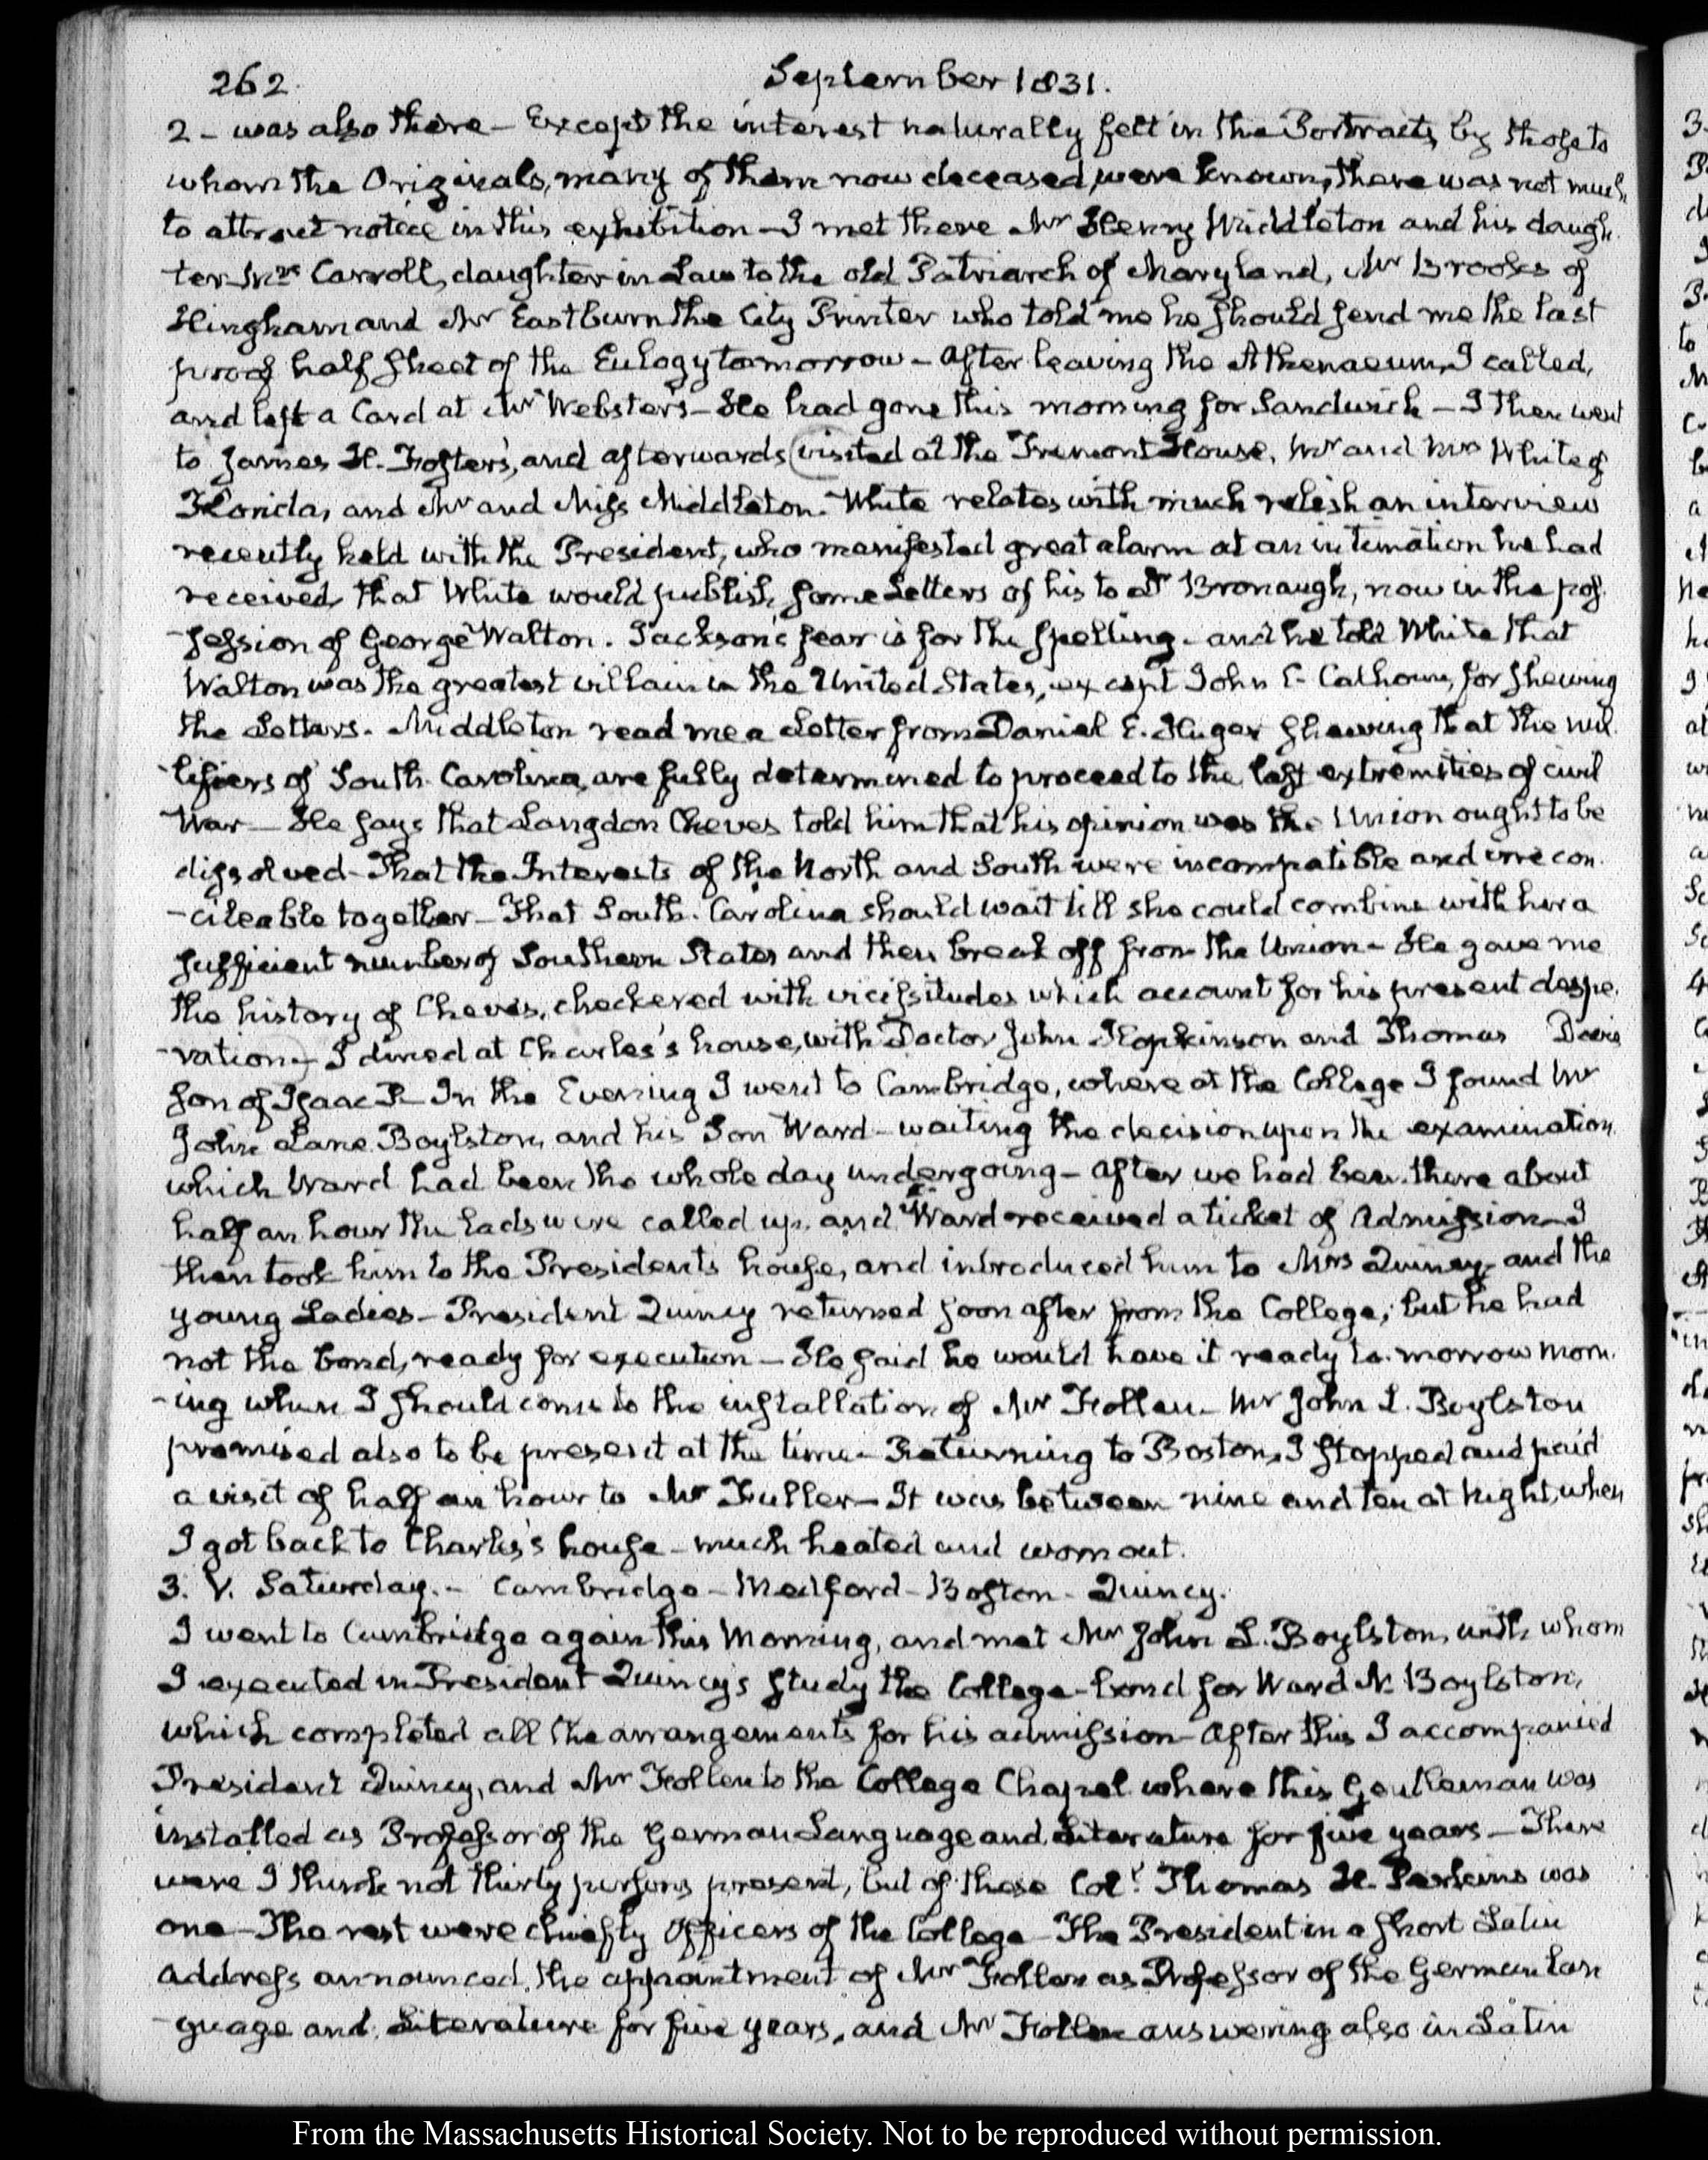 262. September 1831.
2 - was also there - Except the interest naturally felt in the Portraits, by those to
whom the Originals, many of them now deceased, were known, there was not much
to attract notice in this exhibition - I met there Mr Henry Middleton and his daugh-
ter Mrs Carroll, daughter in Law to the old Patriarch of Maryland, Mr Brooks of
Hingham and Mr Eastburn the City Printer who told me he should send me the last
proof half sheet of the Eulogy tomorrow - After leaving the Athenaeum, I called,
and left a Card at Mr Webster's - He had gone this morning for Sandwich - I then went
to James H. Foster's, and afterwards visited at the Tremont House, Mr and Mrs White of
Florida, and Mr and Miss Middleton. White relates with much relish an interview
recently held with the President, who manifested great alarm at an intimation he had
received, that White would publish some Letters of his to Dr Bronaugh, now in the pos-
-session of George Walton. Jackson's fear is for the spelling - and he told White that
Walton was the greatest villain in the United States, except John C. Calhoun, for shewing
the Letters. Middleton read me a Letter from Daniel E. Huger shewing that the nul-
-lifiers of South Carolina, are fully determined to proceed to the last extremities of civil
War - He says that Langdon Cheves told him that his opinion was the Union ought to be
dissolved - That the Interests of the North and South were incompatible and irrecon-
-cileable together - That South Carolina should wait till she could combine with her a
sufficient number of Southern States and then break off from the Union - He gave me
the history of Cheves, checkered with vicissitudes which account for his present despe-
-ration - I dined at Charles's house, with Doctor John Hopkinson and Thomas Davis
son of Isaac P - In the Evening I went to Cambridge, where at the College I found Mr
John Lane Boylston, and his Son Ward - waiting the decision upon the examination
which Ward had been the whole day undergoing - After we had been there about
half an hour the Lads were called up, and Ward received a ticket of Admission - I
then took him to the President's house, and introduced him to Mrs Quincy, and the
young Ladies - President Quincy returned soon after from the College; but he had
not the bond, ready for execution - He said he would have it ready to-morrow morn-
-ing when I should come to the installation of Mr Follen - Mr John L. Boylston
promised also to be present at the time - Returning to Boston, I stopped and paid
a visit of half an hour to Mr Fuller - It was between nine and ten at Night, when
I got back to Charles's house - much heated and worn out.
3. V. Saturday. - Cambridge - Medford - Boston - Quincy.
I went to Cambridge again this Morning, and met Mr John L. Boylston, with whom
I executed in President Quincy's study the College-bond for Ward N. Boylston,
which completed all the arrangements for his admission - After this I accompanied
President Quincy, and Mr Follen to the College Chapel where this Gentleman was
installed as Professor of the German Language and Literature for five years - There
were I think not thirty persons present, but of these Coll. Thomas H. Perkins was
one - The rest were chiefly Officers of the College - The President in a short Latin
address announced the appointment of Mr Follen as Professor of the German Lan
-guage and Literature for five years, and Mr Follen answering also in Latin
From the Massachusetts Historical Society. Not to be reproduced without permission.